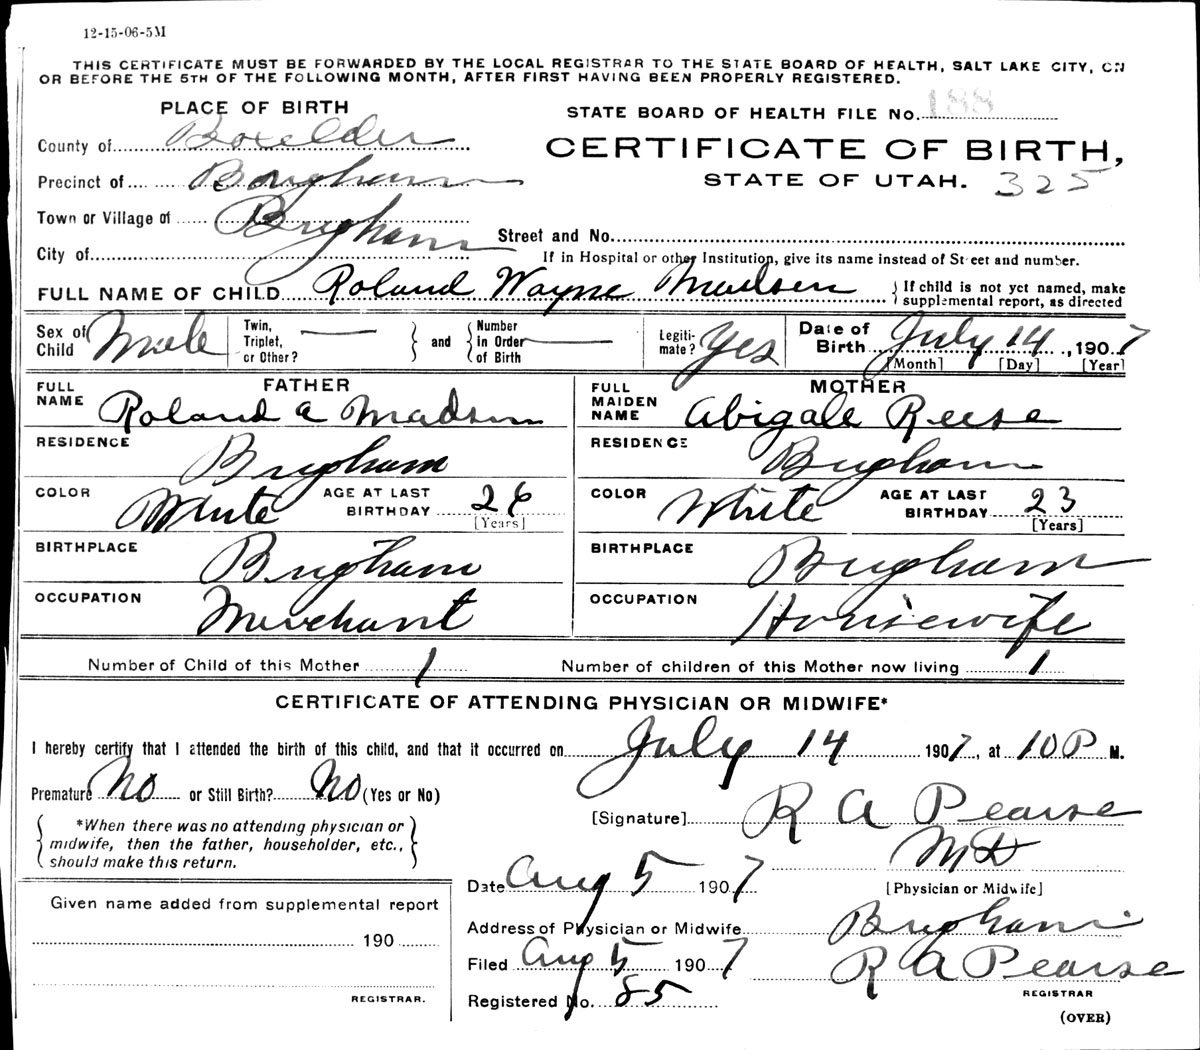 12-15-06-5M
THIS CERTIFICATE MUST BE FORWARDED BY THE LOCAL REGISTRAR TO THE STATE BOARD OF HEALTH, SALT LAKE CITY, ON
OR BEFORE THE 5TH OF THE FOLLOWING MONTH, AFTER FIRST HAVING BEEN PROPERLY REGISTERED.
PLACE OF BIRTH
STATE BOARD OF HEALTH FILE No. 188
County of Boxelder
CERTIFICATE OF BIRTH,
Precinct of Brigham
STATE OF UTAH. 325
Town or Village of Brigham
Street and No.
City of
If in Hospital or other Institution, give its name instead of Street and number.
FULL NAME OF CHILD Roland Wayne Madsen { If child is not yet named, make supplemental report, as directed
Sex of Child Male Twin, Triplet, or Other? — } and { Number in Order of Birth — Legiti-mate? Yes Date of Birth July 14, 1907
[Month] [Day] [Year]
FATHER MOTHER
FULL NAME Roland A Madsen FULL MAIDEN NAME Abigale Reese
RESIDENCE Brigham RESIDENCE Brigham
COLOR White AGE AT LAST BIRTHDAY 26 [Years] COLOR White AGE AT LAST BIRTHDAY 23 [Years]
BIRTHPLACE Brigham BIRTHPLACE Brigham
OCCUPATION Merchant OCCUPATION Housewife
Number of Child of this Mother 1 Number of children of this Mother now living 1
CERTIFICATE OF ATTENDING PHYSICIAN OR MIDWIFE*
I hereby certify that I attended the birth of this child, and that it occurred on July 14 1907, at 10 P M.
Premature No or Still Birth? No (Yes or No)
[Signature] R A Pearse
*When there was no attending physician or
midwife, then the father, householder, etc.,
should make this return.
M D
Date Aug 5 1907 [Physician or Midwife]
Given name added from supplemental report
Address of Physician or Midwife Brigham
190
Filed Aug 5 1907 R A Pearse
REGISTRAR.
Registered No. 85 REGISTRAR
(OVER)